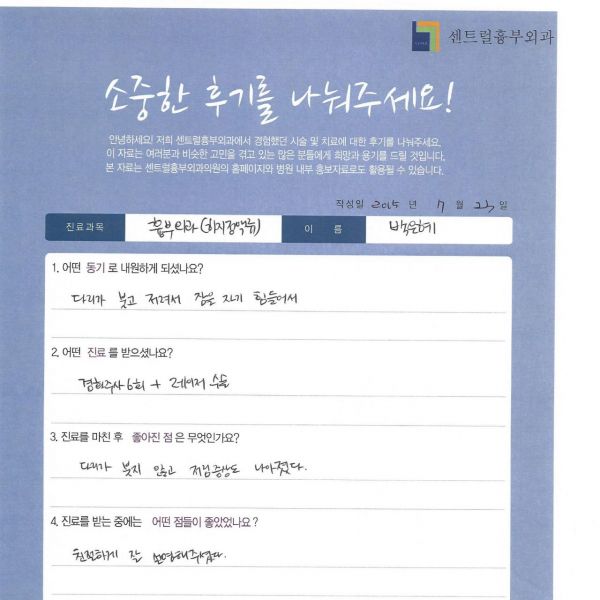 센트럴흉부외과
소중한 후기를 나눠주세요!
안녕하세요! 저희 센트럴흉부외과에서 경험했던 시술 및 치료에 대한 후기를 나눠주세요.
이 자료는 여러분과 비슷한 고민을 겪고 있는 많은 분들에게 희망과 용기를 드릴 것입니다.
본 자료는 센트럴흉부외과의원의 홈페이지와 병원 내부 홍보자료로도 활용될 수 있습니다.
작성일 2015 년 7 월 23 일
진료과목 흉부외과(하지정맥류) 이 름 백은혜
1. 어떤 동기 로 내원하게 되셨나요?
다리가 붓고 저려서 잠을 자기 힘들어서
2. 어떤 진료 를 받으셨나요?
경화주사6회 + 레이저 수술
3. 진료를 마친 후 좋아진 점 은 무엇인가요?
다리가 붓지 않고 저림증상도 나아졌다.
4. 진료를 받는 중에는 어떤 점들이 좋았었나요?
친절하게 잘 설명해주셨다.